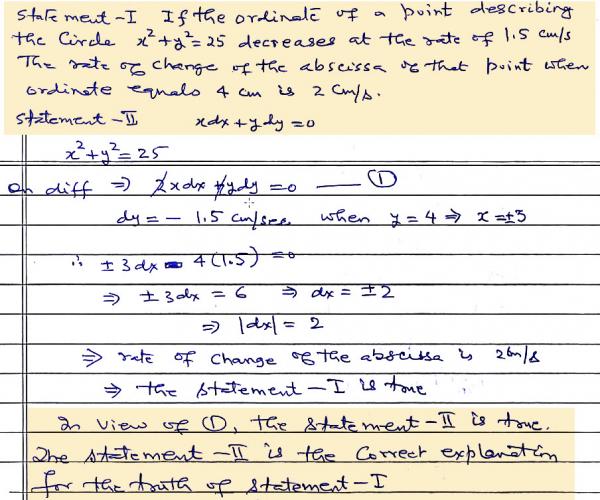 Statement-I If the ordinate of a point describing
the Circle x²+y²=25 decreases at the rate of 1.5 cm/s
The rate of change of the abscissa of that point when
ordinate equals 4 cm is 2 cm/s.
Statement-II xdx+ydy=0
x²+y²=25
on diff ⇒ 2xdx+2ydy=0 —— ①
dy=-1.5 cm/sec when y=4 ⇒ x=±3
∴ ±3dx - 4(1.5)=0
⇒ ±3dx = 6 ⇒ dx = ±2
⇒ |dx| = 2
⇒ rate of change of the abscissa is 2cm/s
⇒ the statement-I is true
In view of ①, the statement-II is true.
The statement-II is the correct explanation
for the truth of statement-I